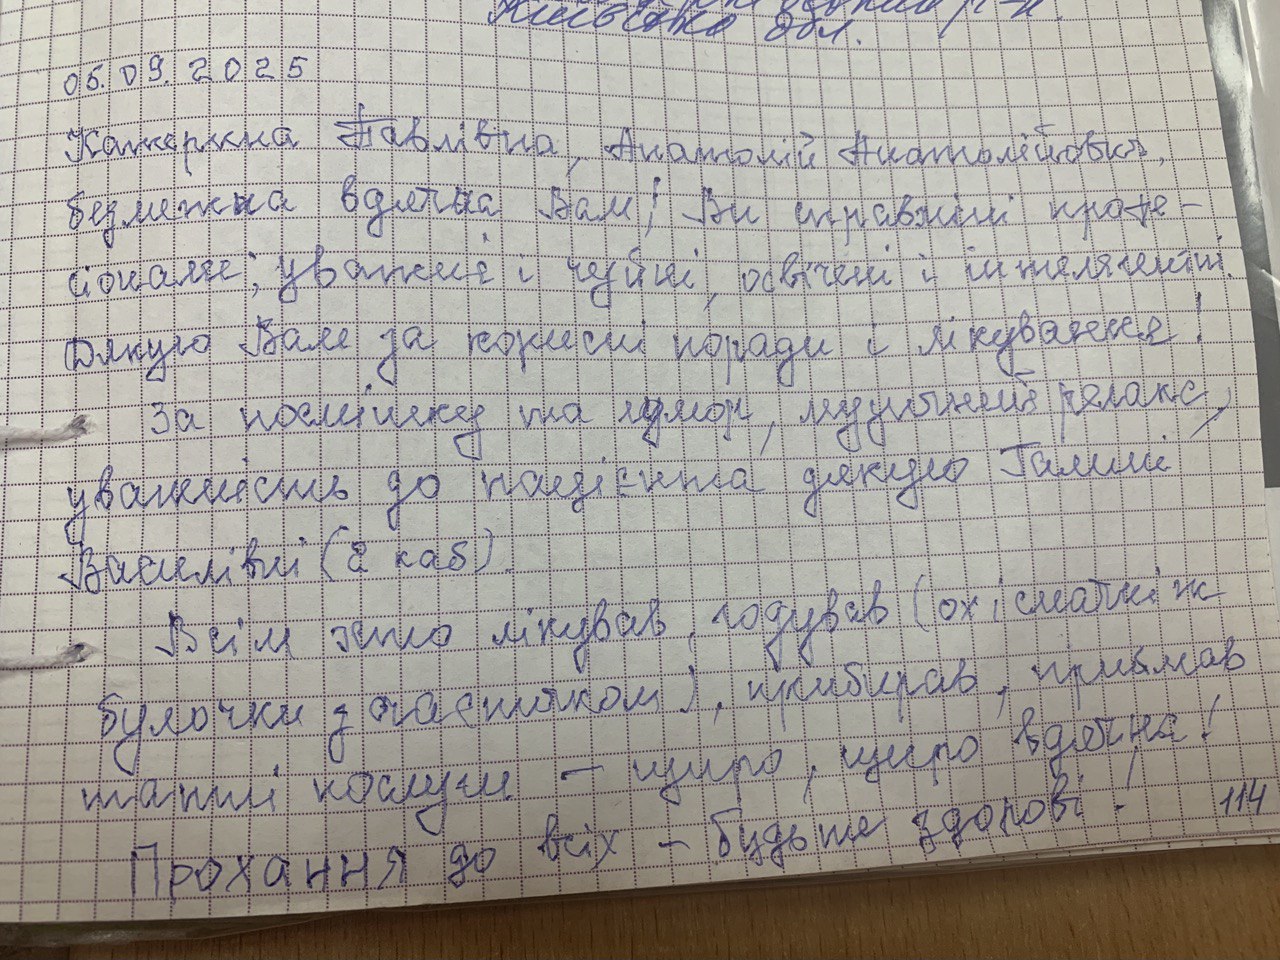 Київська обл.
05.09.2025
Катерина Павлівна, Анатолій Анатолійович,
безмежна вдячна Вам! Ви справжні профе-
сіонали; уважні і чуйні, освічені і інтелігентні.
Дякую Вам за корисні поради і лікування!
За посмішку та гумор, музичний релакс,
уважність до пацієнта дякую Галині
Василівні (2 каб).
Всім хто лікував, годував (ох і смачні ж
булочки з часником), прибирав, приймав
платні послуги – щиро, щиро вдячна!
Прохання до всіх – будьте здорові!
114